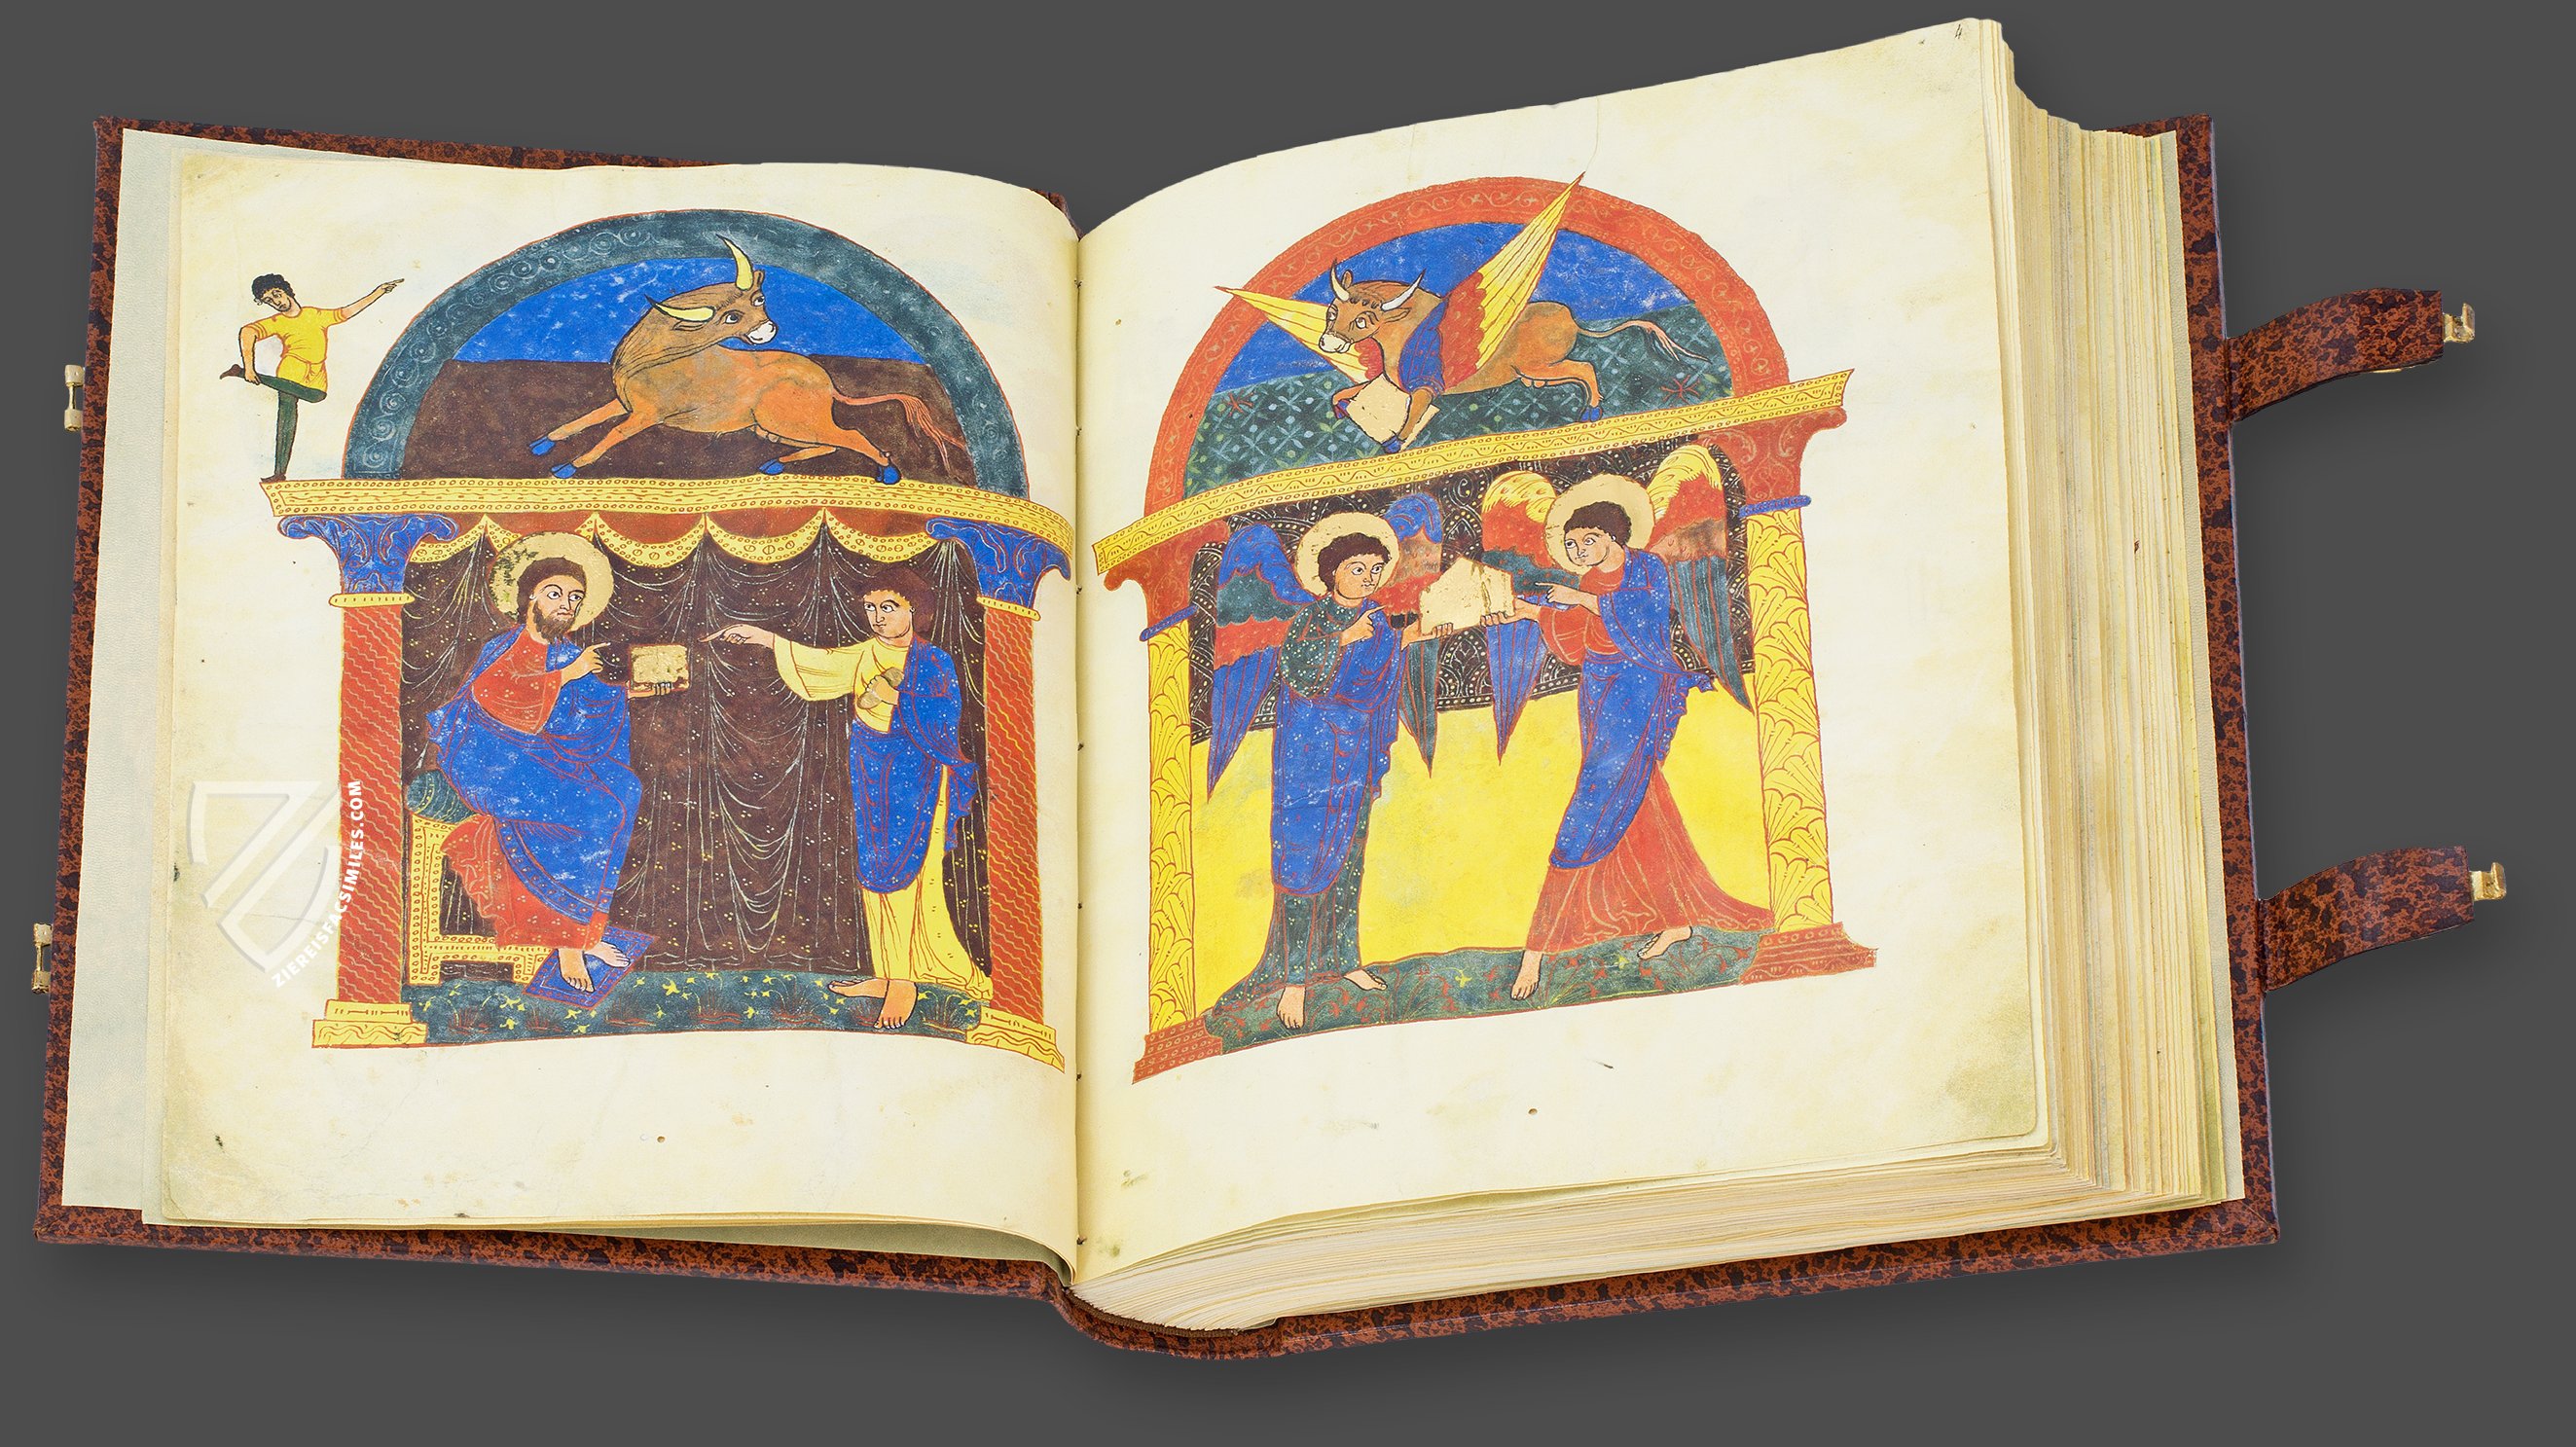 4
ZIEREISFACSIMILES.COM